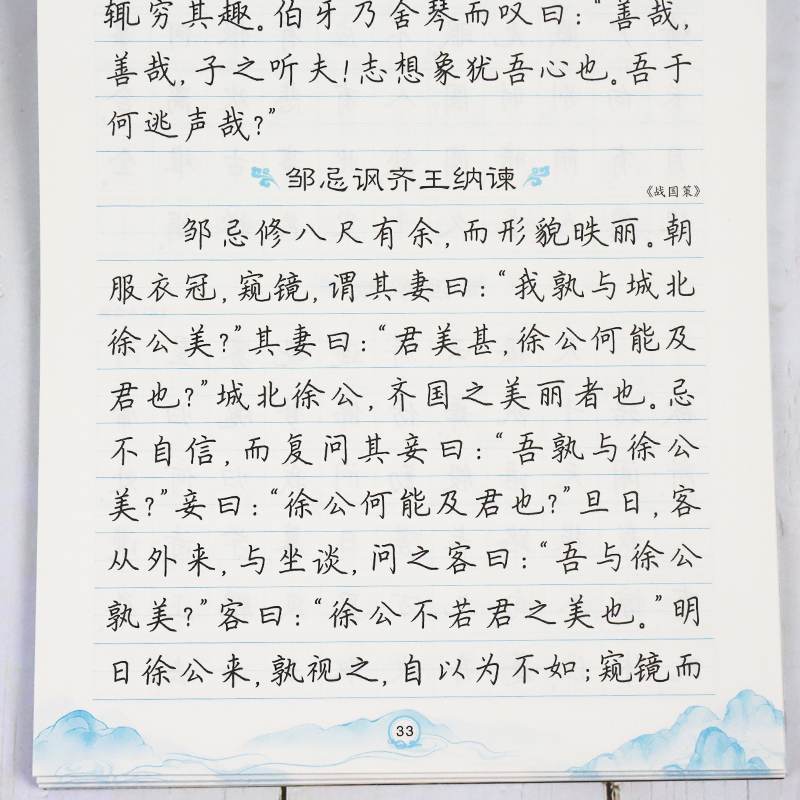 辄穷其趣。伯牙乃舍琴而叹曰：“善哉，
善哉，子之听夫！志想象犹吾心也。吾于
何逃声哉？”
邹忌讽齐王纳谏
《战国策》
邹忌修八尺有余，而形貌昳丽。朝
服衣冠，窥镜，谓其妻曰：“我孰与城北
徐公美？”其妻曰：“君美甚，徐公何能及
君也？”城北徐公，齐国之美丽者也。忌
不自信，而复问其妾曰：“吾孰与徐公
美？”妾曰：“徐公何能及君也？”旦日，客
从外来，与坐谈，问之客曰：“吾与徐公
孰美？”客曰：“徐公不若君之美也。”明
日徐公来，孰视之，自以为不如；窥镜而
33